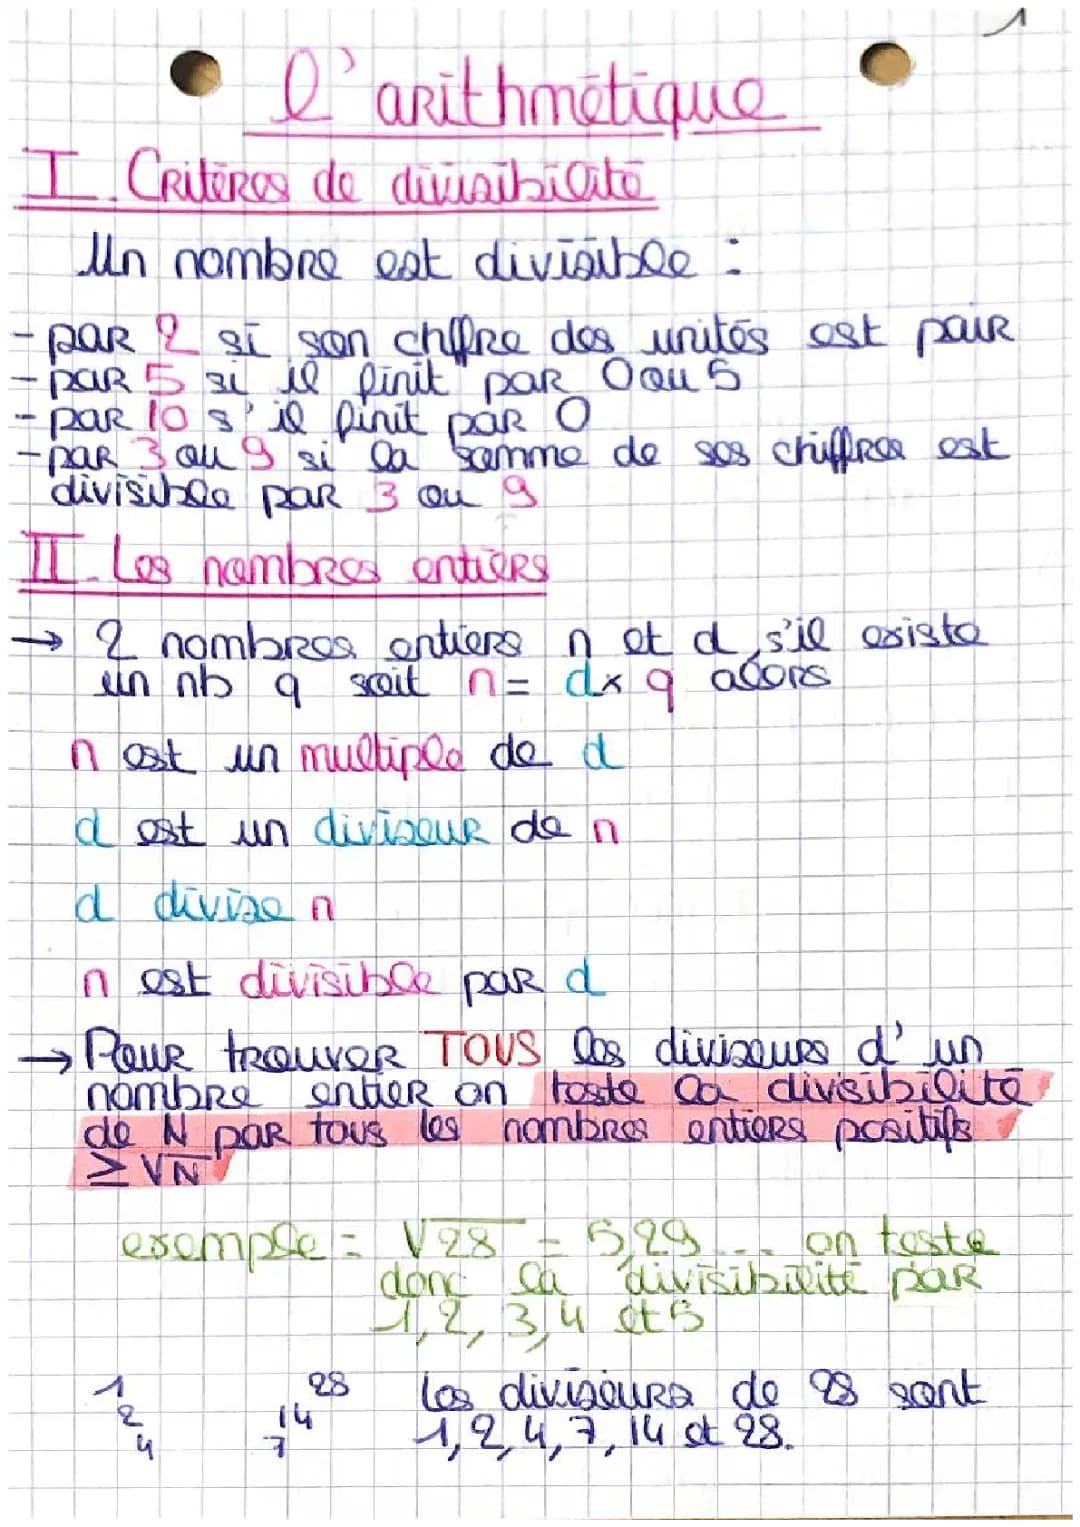 1
l'arithmétique
I. Critères de divisibilité
Un nombre est divisible :
- par 2 si son chffre des unités est pair
- par 5 si il finit par 0 ou 5
- par 10 s'il finit par 0
- par 3 ou 9 si la somme de ses chiffres est
divisible par 3 ou 9
II. Les nombres entiers
→ 2 nombres entiers n et d, s'il existe
un nb q soit n = d× q alors
n est un multiple de d
d est un diviseur de n
d divise n
n est divisible par d
→ Pour trouver TOUS les diviseurs d'un
nombre entier on teste la divisibilité
de N par tous les nombres entiers positifs
≥ √N
exemple = √28 = 5,29... on teste
donc la divisibilité par
1, 2, 3, 4 et 5
1 28 Les diviseurs de 28 sont
2 14 1, 2, 4, 7, 14 et 28.
4 7